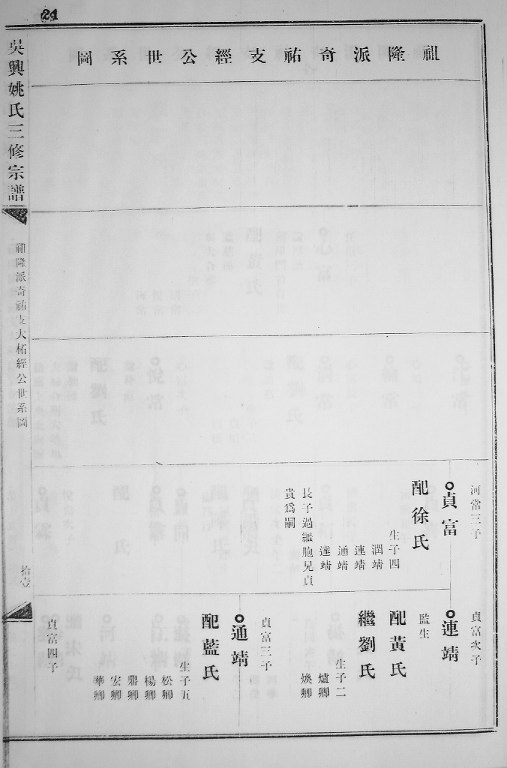 21
祖隆派奇祐支經公世系圖
吳興姚氏三修宗譜
祖隆派奇祐支大柘經公世系圖
拾壹
河當三子
貞富
配徐氏
生子四
潤靖
連靖
通靖
達靖
長子過繼胞兄貞
貴爲嗣
貞富次子
連靖
監生
配黃氏
繼劉氏
生子二
爐卿
煥卿
貞富三子
通靖
配藍氏
生子五
松卿
楊卿
鼎卿
宏卿
華卿
貞富四子